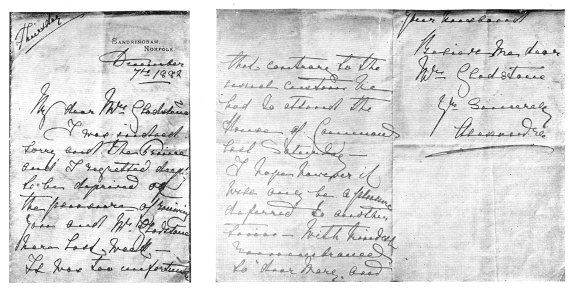 Thursday
SANDRINGHAM,
NORFOLK.
December
7th 1882
My dear Mrs Gladstone
I was indeed
sorry and the Prince
and I regretted deeply
to be deprived of
the pleasure of seeing
you and Mr Gladstone
here last week –
It was too unfortunate
that contrary to the
usual custom he
had to attend the
House of Commons
last Saturday –
I hope however it
will only be a pleasure
deferred to another
time – With kindest
remembrances
to dear Mary and
your husband
Believe me dear
Mrs Gladstone
Yrs Sincerely
Alexandra